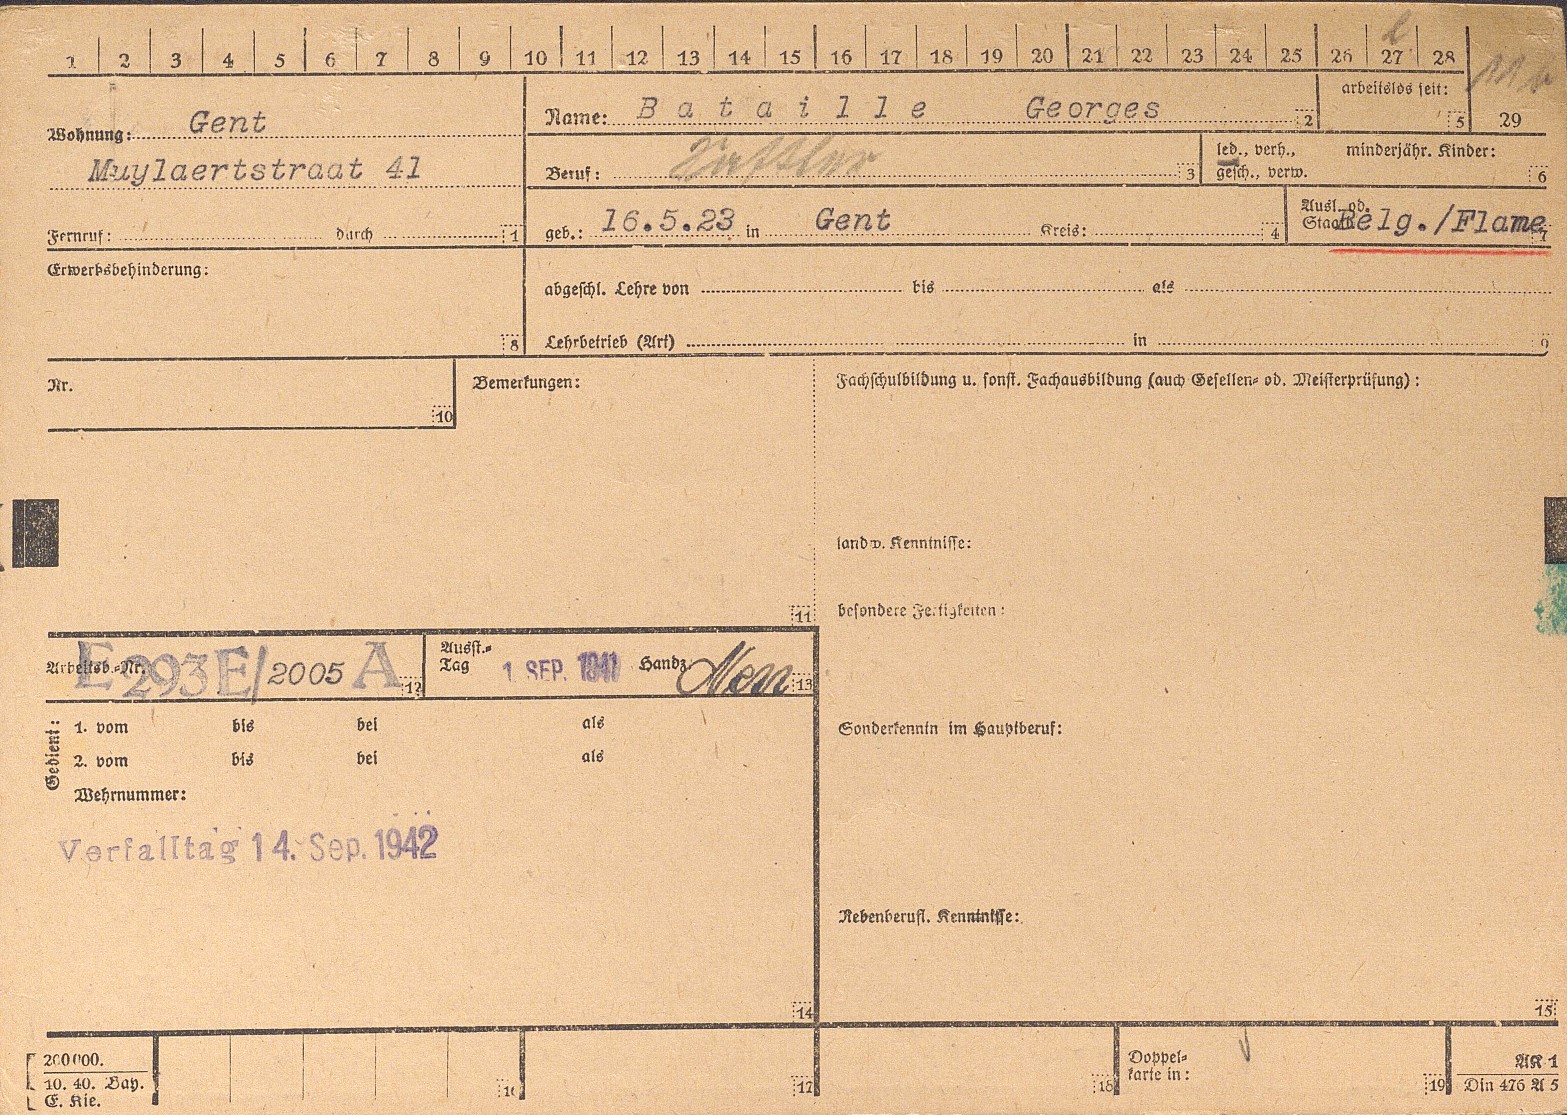 1 2 3 4 5 6 7 8 9 10 11 12 13 14 15 16 17 18 19 20 21 22 23 24 25 26 27 28 29
Wohnung: Gent
Muylaertstraat 41
Fernruf: durch 1
Name: Bataille Georges 2
arbeitslos seit: 5
Beruf: 3
led., verh., gesch., verw.
minderjähr. Kinder: 6
geb.: 16.5.23 in Gent Kreis: 4
Ausl. od. Staatl. Belg./Flame 7
Erwerbsbehinderung: 8
abgeschl. Lehre von bis als
Lehrbetrieb (Art) in 9
Nr. 10
Bemerkungen: 11
Fachschulbildung u. sonst. Fachausbildung (auch Gesellen- od. Meisterprüfung):
landw. Kenntnisse:
besondere Fertigkeiten:
Arbeitsb.-Nr. E 293E/2005 A 12
Ausst.-Tag 1. SEP. 1941 Handz. 13
Gedient:
1. vom bis bei als
2. vom bis bei als
Wehrnummer:
Verfalltag 14. Sep. 1942
14
Sonderkenntn im Hauptberuf:
Nebenberufl. Kenntnisse:
15
200000.
10. 40. Bay.
E. Kie.
16 17 18
Doppel-
karte in: 19
AK 1
Din 476 A 5